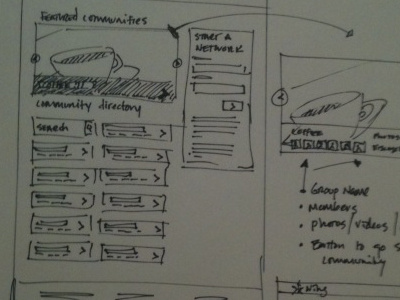 Featured communities
START A
NETWORK
COFFEE
community directory
search
COFFEE
Photos
GROUP NAME
• MEMBERS
• photos / videos /
• Button to go
community